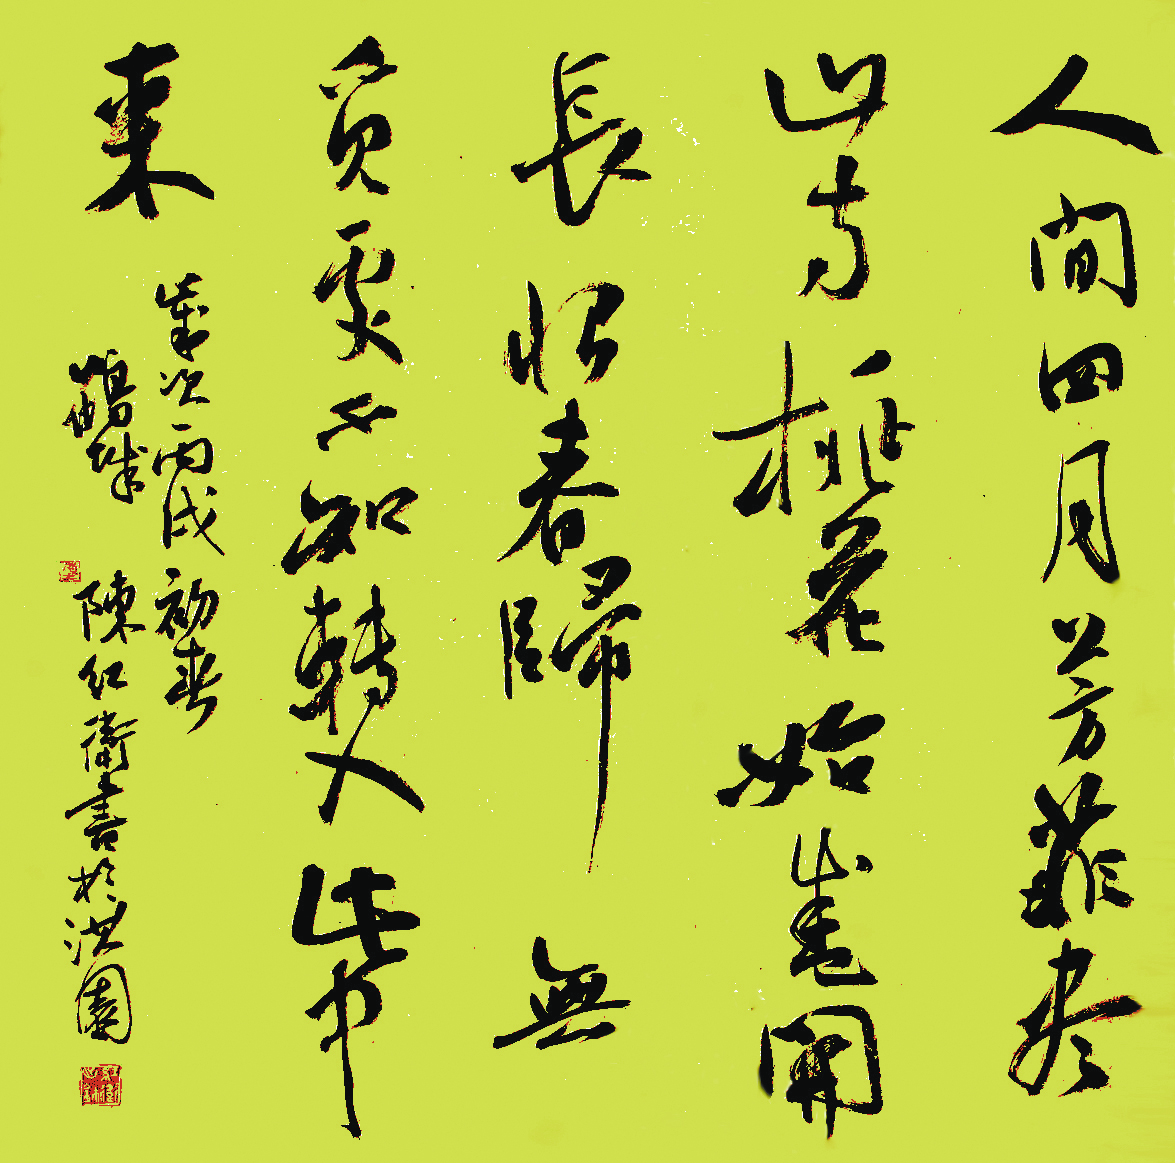 人間四月芳菲盡
山寺桃花始盛開
長恨春歸無
覓處不知轉入此中
來
歲次丙戌初春
鵬城 陳紅衛書於洪園